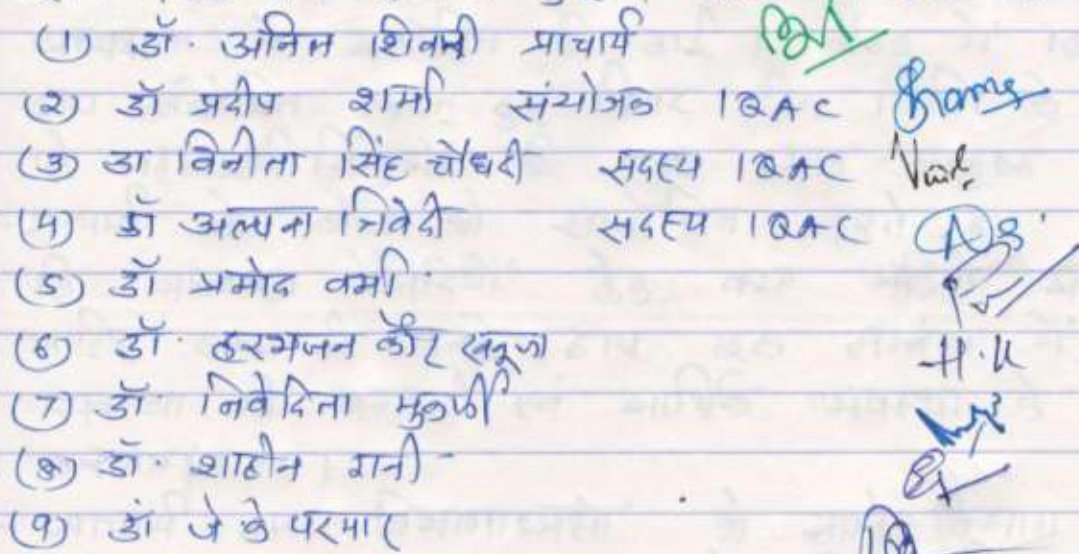 (1) डॉ. अनिल शिवानी प्राचार्य
(2) डॉ प्रदीप शर्मा संयोजक IQAC Sharma
(3) डा विनीता सिंह चौधरी सदस्य IQAC
(4) डॉ अल्पना त्रिवेदी सदस्य IQAC
(5) डॉ प्रमोद वर्मा
(6) डॉ. हरभजन कौर खनूजा H.K
(7) डॉ. निवेदिता मुखर्जी
(8) डॉ. शाहीन रानी
(9) डॉ जे के परमार